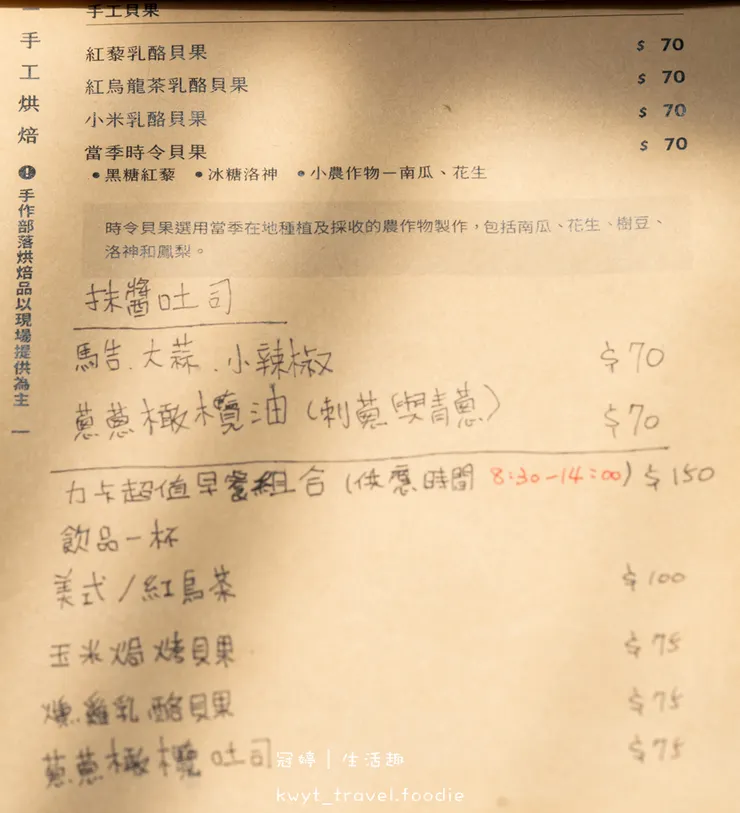 手工貝果
紅藜乳酪貝果 $ 70
紅烏龍茶乳酪貝果 $ 70
小米乳酪貝果 $ 70
當季時令貝果 $ 70
•黑糖紅藜 •冰糖洛神 •小農作物—南瓜、花生
時令貝果選用當季在地種植及採收的農作物製作，包括南瓜、花生、樹豆、
洛神和鳳梨。
抹醬吐司
馬告.大蒜.小辣椒 $70
蔥蔥橄欖油(刺蔥與青蔥) $70
力卡超值早餐組合(供應時間 8:30-14:00) $150
飲品一杯
美式/紅烏茶 $100
玉米焗烤貝果 $75
燻雞乳酪貝果 $75
蔥蔥橄欖吐司 $75
一手工烘焙!手作部落烘焙品以現場提供為主一
冠婷｜生活趣
kwyt_travel.foodie